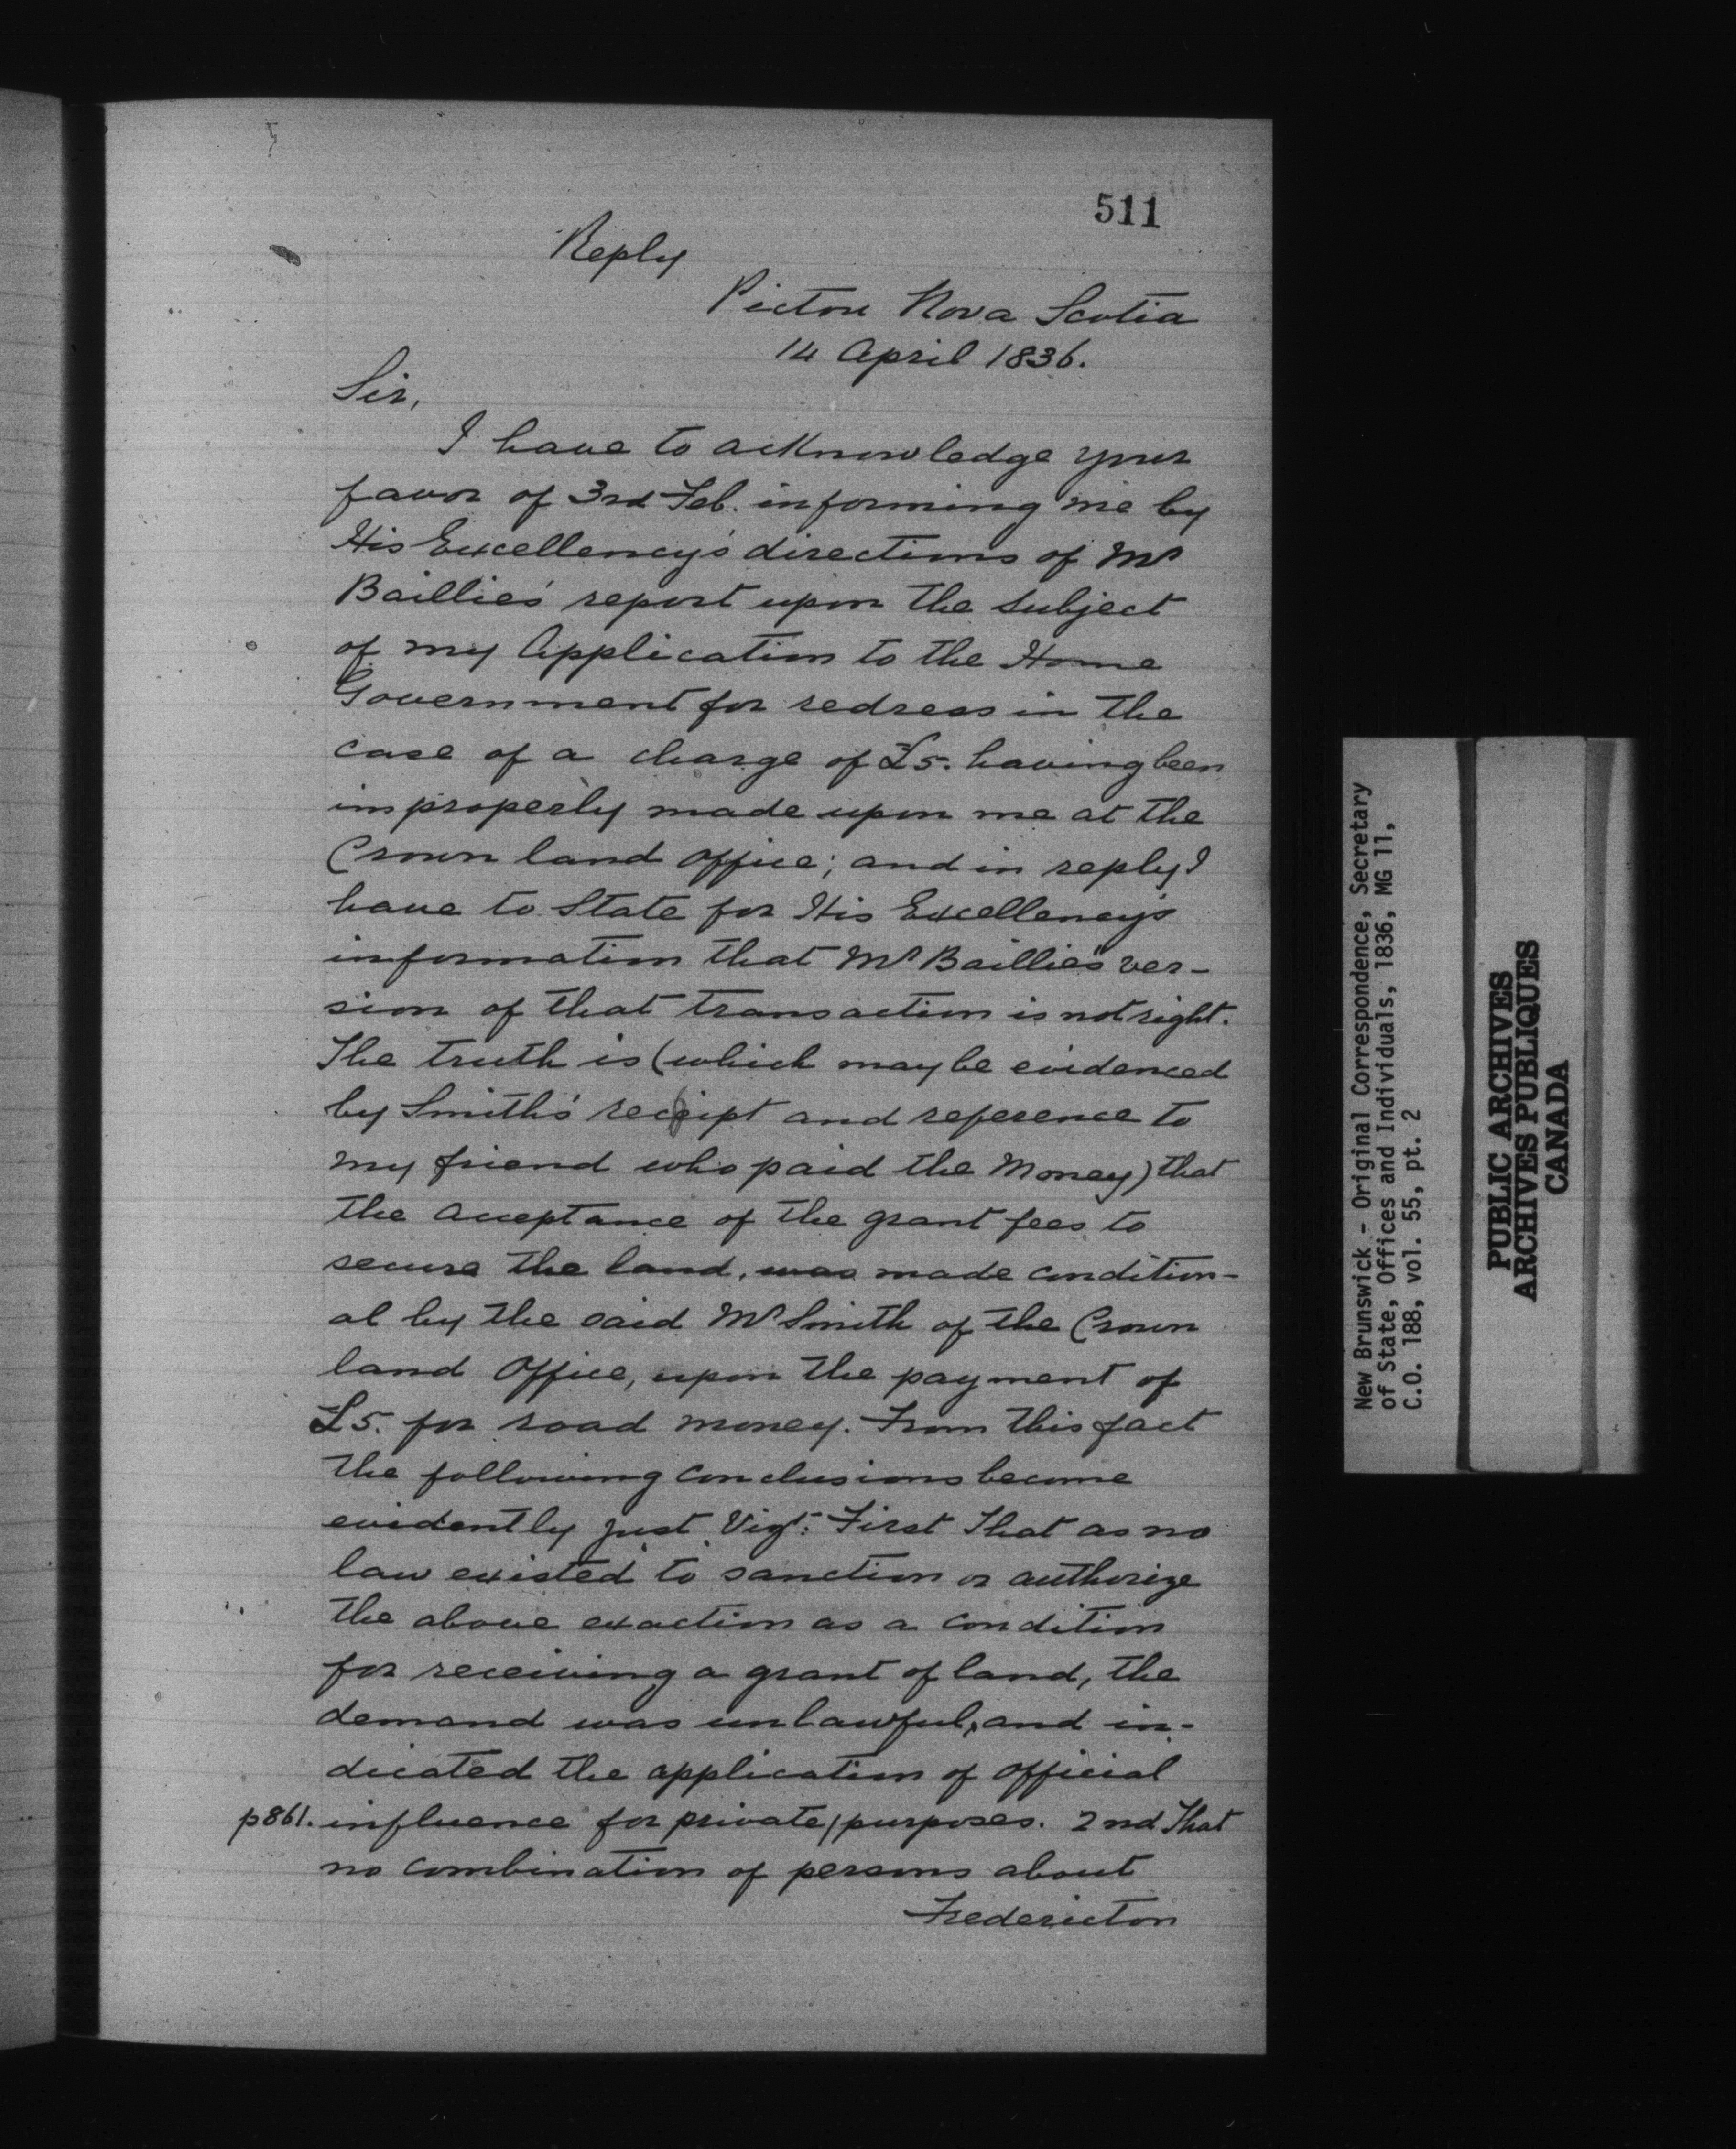 511
Reply
Pictou Nova Scotia
14 April 1836.
Sir,
I have to acknowledge your
favor of 3rd Feb. informing me by
His Excellency's directions of Mr
Baillie's report upon the subject
of my Application to the Home
Government for redress in the
case of a charge of £5. having been
improperly made upon me at the
Crown land office; and in reply I
have to State for His Excellency's
information that Mr Baillie's ver-
sion of that transaction is not right.
The truth is (which may be evidenced
by Smith's receipt and reference to
my friend who paid the Money) that
the acceptance of the grant fees to
secure the land, was made condition-
al by the said Mr Smith of the Crown
land Office, upon the payment of
£5. for road money. From this fact
the following conclusions become
evidently just Vizt: First That as no
law existed to sanction or authorize
the above exaction as a condition
for receiving a grant of land, the
demand was unlawful, and in-
dicated the application of official
p861. influence for private/purposes. 2nd That
no combination of persons about
Fredericton
New Brunswick - Original Correspondence, Secretary
of State, Offices and Individuals, 1836, MG 11,
C.O. 188, vol. 55, pt. 2
PUBLIC ARCHIVES
ARCHIVES PUBLIQUES
CANADA